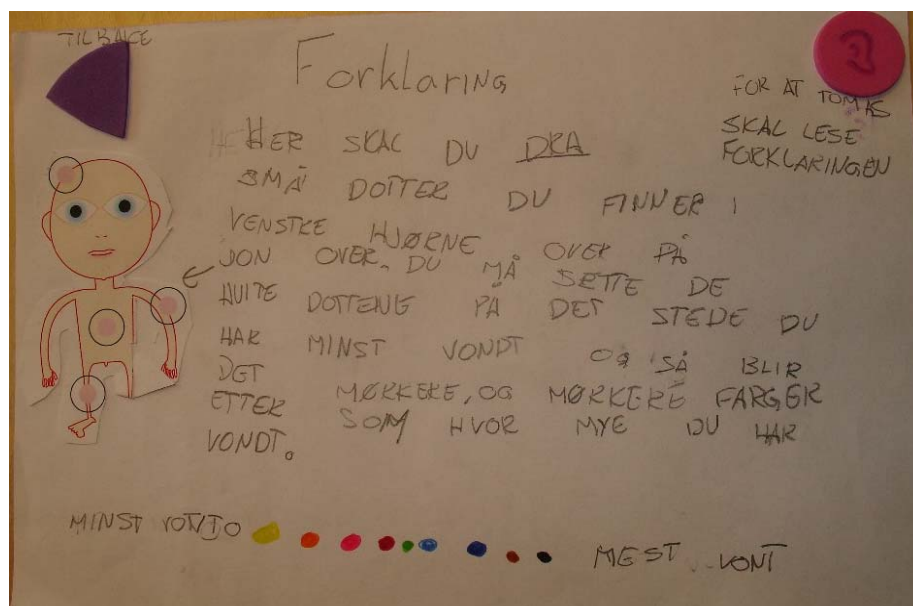 TILBAKE
Forklaring
FOR AT TOMAS
SKAL LESE
FORKLARINGEN
HER SKAL DU DRA
SMÅ DOTTER DU FINNER I
VENSTRE HJØRNE OVER PÅ
JON OVER. DU MÅ SETTE DE
HUITE DOTTENE PÅ DET STEDE DU
HAR MINST VONDT OG SÅ BLIR
DET MØRKERE, OG MØRKERE FARGER
ETTER SOM HVOR MYE DU HAR
VONDT.
MINST VONDT
MEST VONT